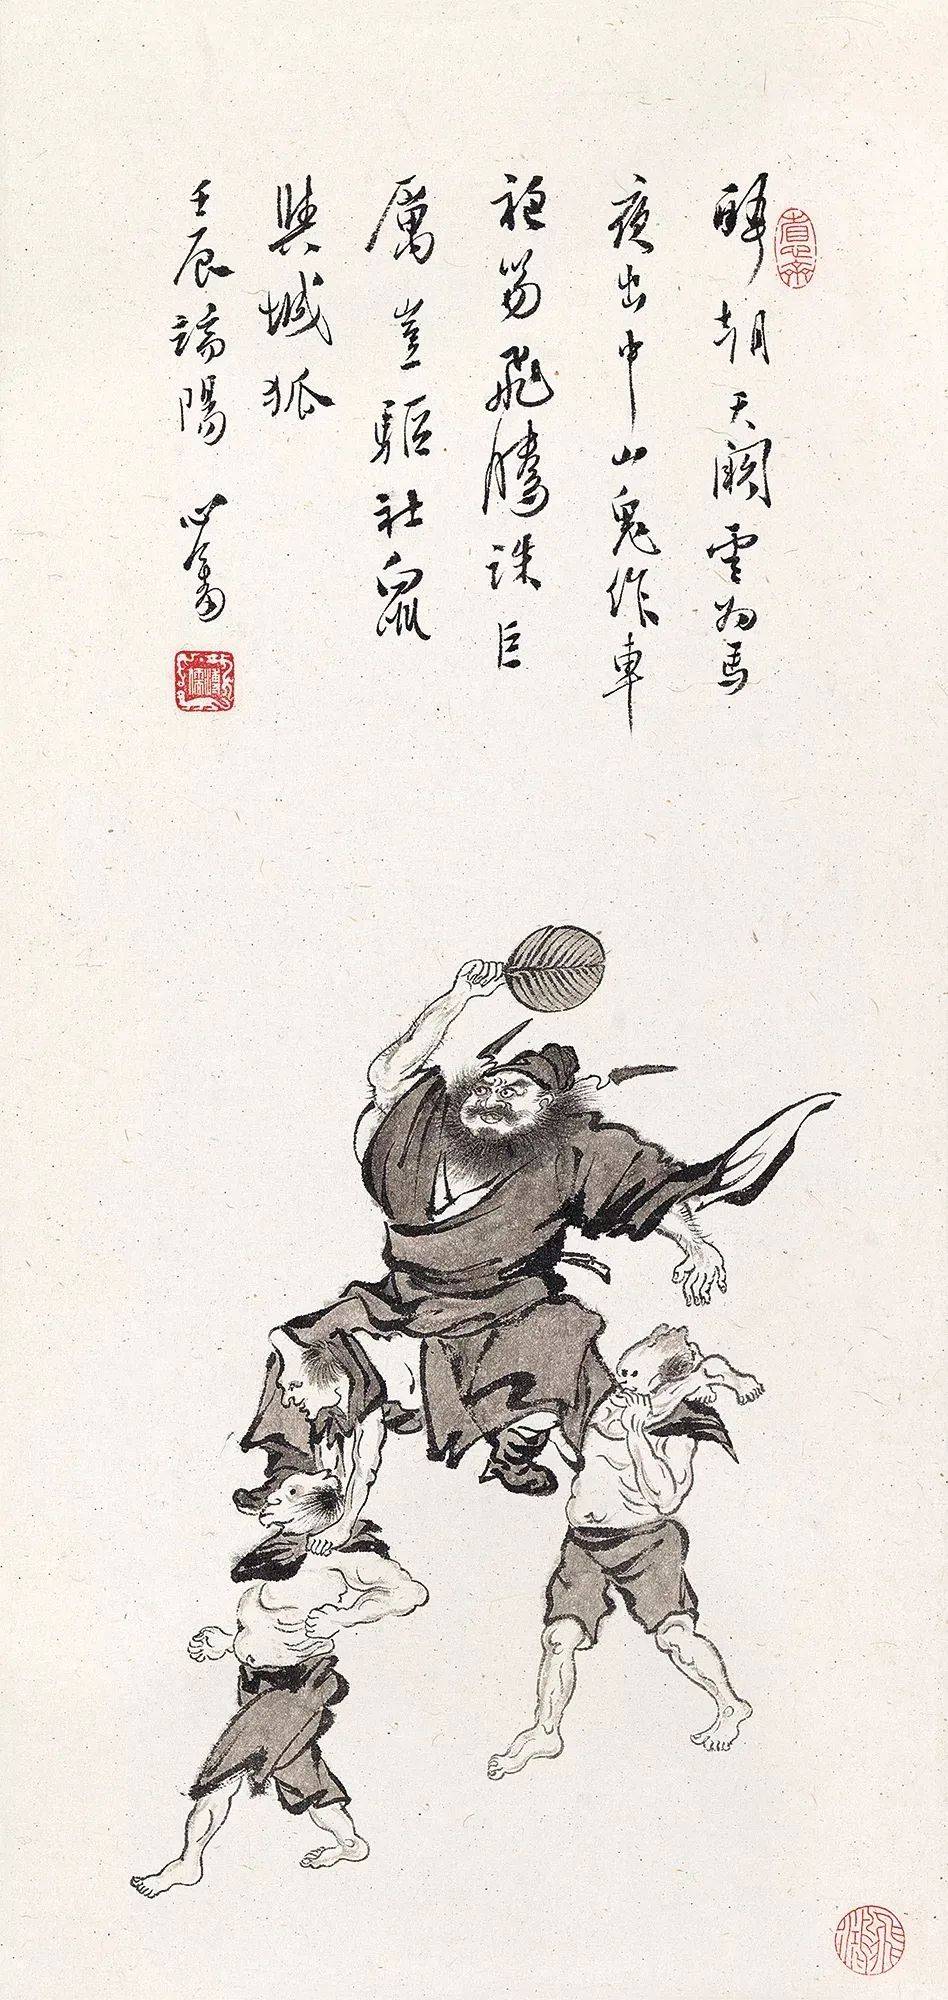 醉朝天闕雲為馬
夜出中山鬼作車
袍笏飛騰誅巨
厲豈驅社鼠
與城狐
壬辰端陽 心畬
溥儒